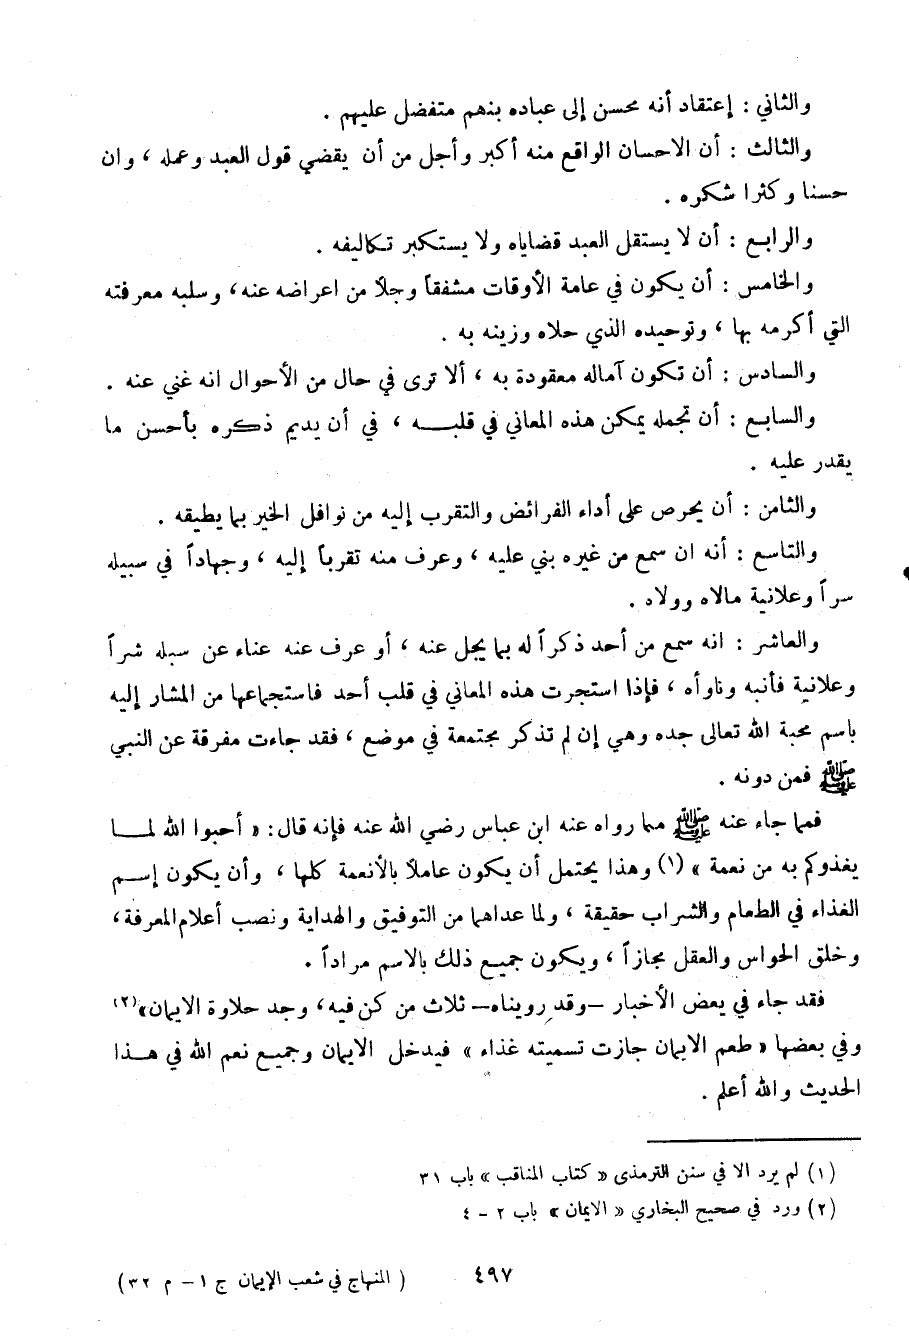 والثاني : إعتقاد أنه محسن إلى عباده بنهم متفضل عليهم .
والثالث : أن الاحسان الواقع منه أكبر وأجل من أن يقضي قول العبد وعمله ، وان
حسنا وكثرا شكره .
والرابع : أن لا يستقل العبد قضاياه ولا يستكبر تكاليفه .
والخامس : أن يكون في عامة الأوقات مشفقاً وجلاً من اعراضه عنه ، وسلبه معرفته
التي أكرمه بها ، وتوحيده الذي حلاه وزينه به .
والسادس : أن تكون آماله معقودة به ، ألا ترى في حال من الأحوال انه غني عنه .
والسابع : أن تجمله يمكن هذه المعاني في قلبه ، في أن يديم ذكره بأحسن ما
يقدر عليه .
والثامن : أن يحرص على أداء الفرائض والتقرب إليه من نوافل الخير بما يطيقه .
والتاسع : أنه ان سمع من غيره بني عليه ، وعرف منه تقرباً إليه ، وجهاداً في سبيله
سراً وعلانية مالاه وولاه .
والعاشر : انه سمع من أحد ذكراً له بما يجل عنه ، أو عرف عنه عناء عن سبله شراً
وعلانية فأنبه وناوأه ، فإذا استجرت هذه المعاني في قلب أحد فاستجماعها من المشار إليه
باسم محبة الله تعالى جده وهي إن لم تذكر مجتمعة في موضع ، فقد جاءت مفرقة عن النبي
ﷺ فمن دونه .
فمما جاء عنه ﷺ مما رواه عنه ابن عباس رضي الله عنه فإنه قال : « أحبوا الله لما
يغذوكم به من نعمة » (١) وهذا يحتمل أن يكون عاملاً بالأنعمة كلها ، وأن يكون إسم
الغذاء في الطعام والشراب حقيقة ، ولما عداهما من التوفيق والهداية ونصب أعلام المعرفة ،
وخلق الحواس والعقل مجازاً ، ويكون جميع ذلك بالاسم مراداً .
فقد جاء في بعض الأخبار –وقد رويناه– ثلاث من كن فيه ، وجد حلاوة الايمان» (٢)
وفي بعضها « طعم الايمان جازت تسميته غذاء » فيدخل الايمان وجميع نعم الله في هذا
الحديث والله أعلم .
(١) لم يرد الا في سنن الترمذى « كتاب المناقب » باب ٣١
(٢) ورد في صحيح البخاري « الايمان » باب ٢ – ٤
٤٩٧
( المنهاج في شعب الإيمان ج ١ – م ٣٢ )